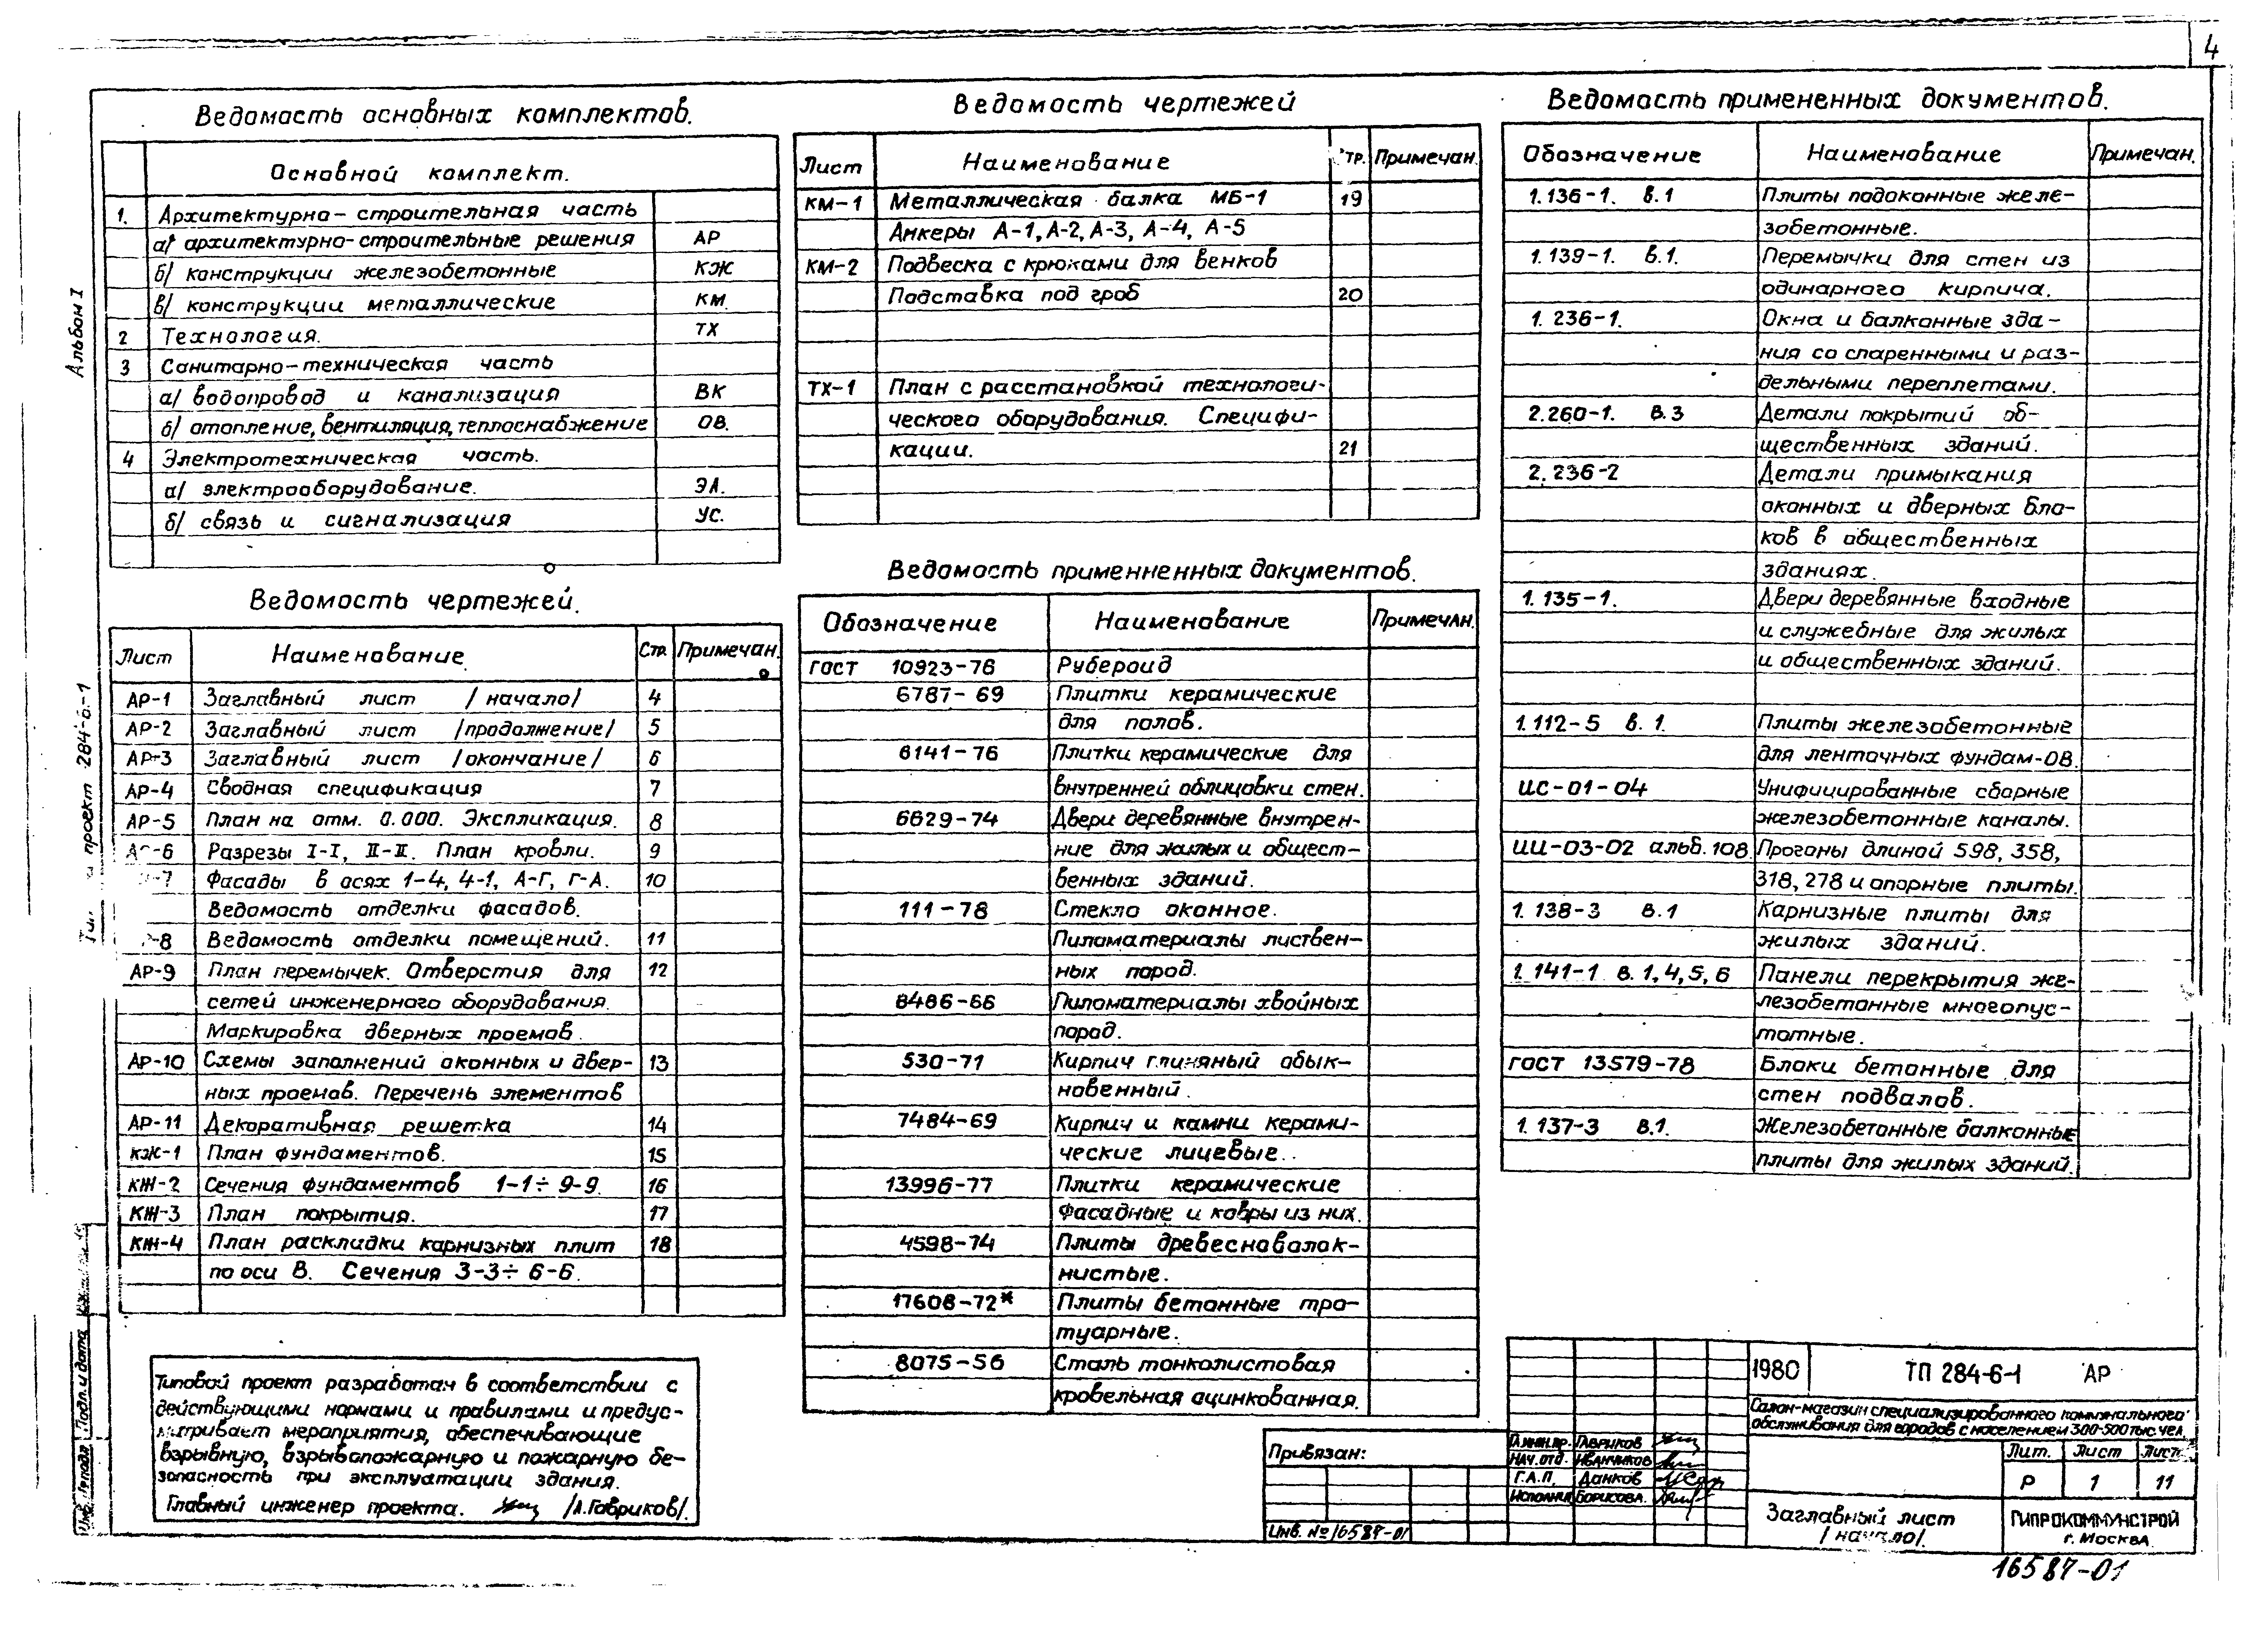 4
Альбом I
Ведомость основных комплектов.
Основной комплект.
1. Архитектурно-строительная часть
а/ архитектурно-строительные решения АР
б/ конструкции железобетонные КЖ
в/ конструкции металлические КМ.
2 Технология. ТХ
3 Санитарно-техническая часть
а/ водопровод и канализация ВК
б/ отопление, вентиляция, теплоснабжение ОВ.
4 Электротехническая часть.
а/ электрооборудование. ЭЛ.
б/ связь и сигнализация УС.
Ведомость чертежей.
Лист Наименование Стр. Примечан.
АР-1 Заглавный лист /начало/ 4
АР-2 Заглавный лист /продолжение/ 5
АР-3 Заглавный лист /окончание/ 6
АР-4 Сводная спецификация 7
АР-5 План на отм. 0.000. Экспликация. 8
-6 Разрезы I-I, II-II. План кровли. 9
-7 Фасады в осях 1-4, 4-1, А-Г, Г-А. 10
Ведомость отделки фасадов.
-8 Ведомость отделки помещений. 11
АР-9 План перемычек. Отверстия для 12
сетей инженерного оборудования.
Маркировка дверных проемов.
АР-10 Схемы заполнений оконных и двер- 13
ных проемов. Перечень элементов
АР-11 Декоративная решетка 14
КЖ-1 План фундаментов. 15
КЖ-2 Сечения фундаментов 1-1÷9-9. 16
КЖ-3 План покрытия. 17
КЖ-4 План раскладки карнизных плит 18
по оси В. Сечения 3-3÷6-6.
Типовой проект разработан в соответствии с
действующими нормами и правилами и предус-
матривает мероприятия, обеспечивающие
взрывную, взрывопожарную и пожарную бе-
зопасность при эксплуатации здания.
Главный инженер проекта. /А.Гавриков/.
Ведомость чертежей
Лист Наименование тр. Примечан.
КМ-1 Металлическая балка МБ-1 19
Анкеры А-1, А-2, А-3, А-4, А-5
КМ-2 Подвеска с крюками для венков
Подставка под гроб 20
ТХ-1 План с расстановкой технологи-
ческого оборудования. Специфи-
кации. 21
Ведомость примененных документов.
Обозначение Наименование Примечан.
ГОСТ 10923-76 Рубероид
6787-69 Плитки керамические
для полов.
6141-76 Плитки керамические для
внутренней облицовки стен.
6629-74 Двери деревянные внутрен-
ние для жилых и общест-
венных зданий.
111-78 Стекло оконное.
Пиломатериалы листвен-
ных пород.
8486-66 Пиломатериалы хвойных
пород.
530-71 Кирпич глиняный обык-
новенный.
7484-69 Кирпич и камни керами-
ческие лицевые.
13996-77 Плитки керамические
фасадные и ковры из них.
4598-74 Плиты древесноволок-
нистые.
17608-72* Плиты бетонные тро-
туарные.
8075-56 Сталь тонколистовая
кровельная оцинкованная.
Ведомость примененных документов.
Обозначение Наименование Примечан.
1.136-1. в.1 Плиты подоконные желе-
зобетонные.
1.139-1. в.1. Перемычки для стен из
одинарного кирпича.
1.236-1. Окна и балконные зда-
ния со спаренными и раз-
дельными переплетами.
2.260-1. в.3 Детали покрытий об-
щественных зданий.
2.236-2 Детали примыкания
оконных и дверных бло-
ков в общественных
зданиях.
1.135-1. Двери деревянные входные
и служебные для жилых
и общественных зданий.
1.112-5 в.1. Плиты железобетонные
для ленточных фундам-ов.
ИС-01-04 Унифицированные сборные
железобетонные каналы.
ИИ-03-02 альб.108. Прогоны длиной 598, 358,
318, 278 и опорные плиты.
1.138-3 в.1 Карнизные плиты для
жилых зданий.
1.141-1 в.1,4,5,6 Панели перекрытия же-
лезобетонные многопус-
тотные.
ГОСТ 13579-78 Блоки бетонные для
стен подвалов.
1.137-3 в.1. Железобетонные балконные
плиты для жилых зданий.
проект 284-6-1
Подп. и дата
Инв. № подл
Привязан:
Инв. № 16587-01
Гл.инж.пр. Гавриков
Нач.отд. Иванчиков
Г.А.П. Данков
Исполнил Борисова.
1980 ТП 284-6-1 АР
Салон-магазин специализированного коммунального
обслуживания для городов с населением 300-500 тыс.чел.
Лит. Лист Лист.
Р 1 11
Заглавный лист
/начало/.
ГИПРОКОММУНСТРОЙ
г. Москва
16587-01